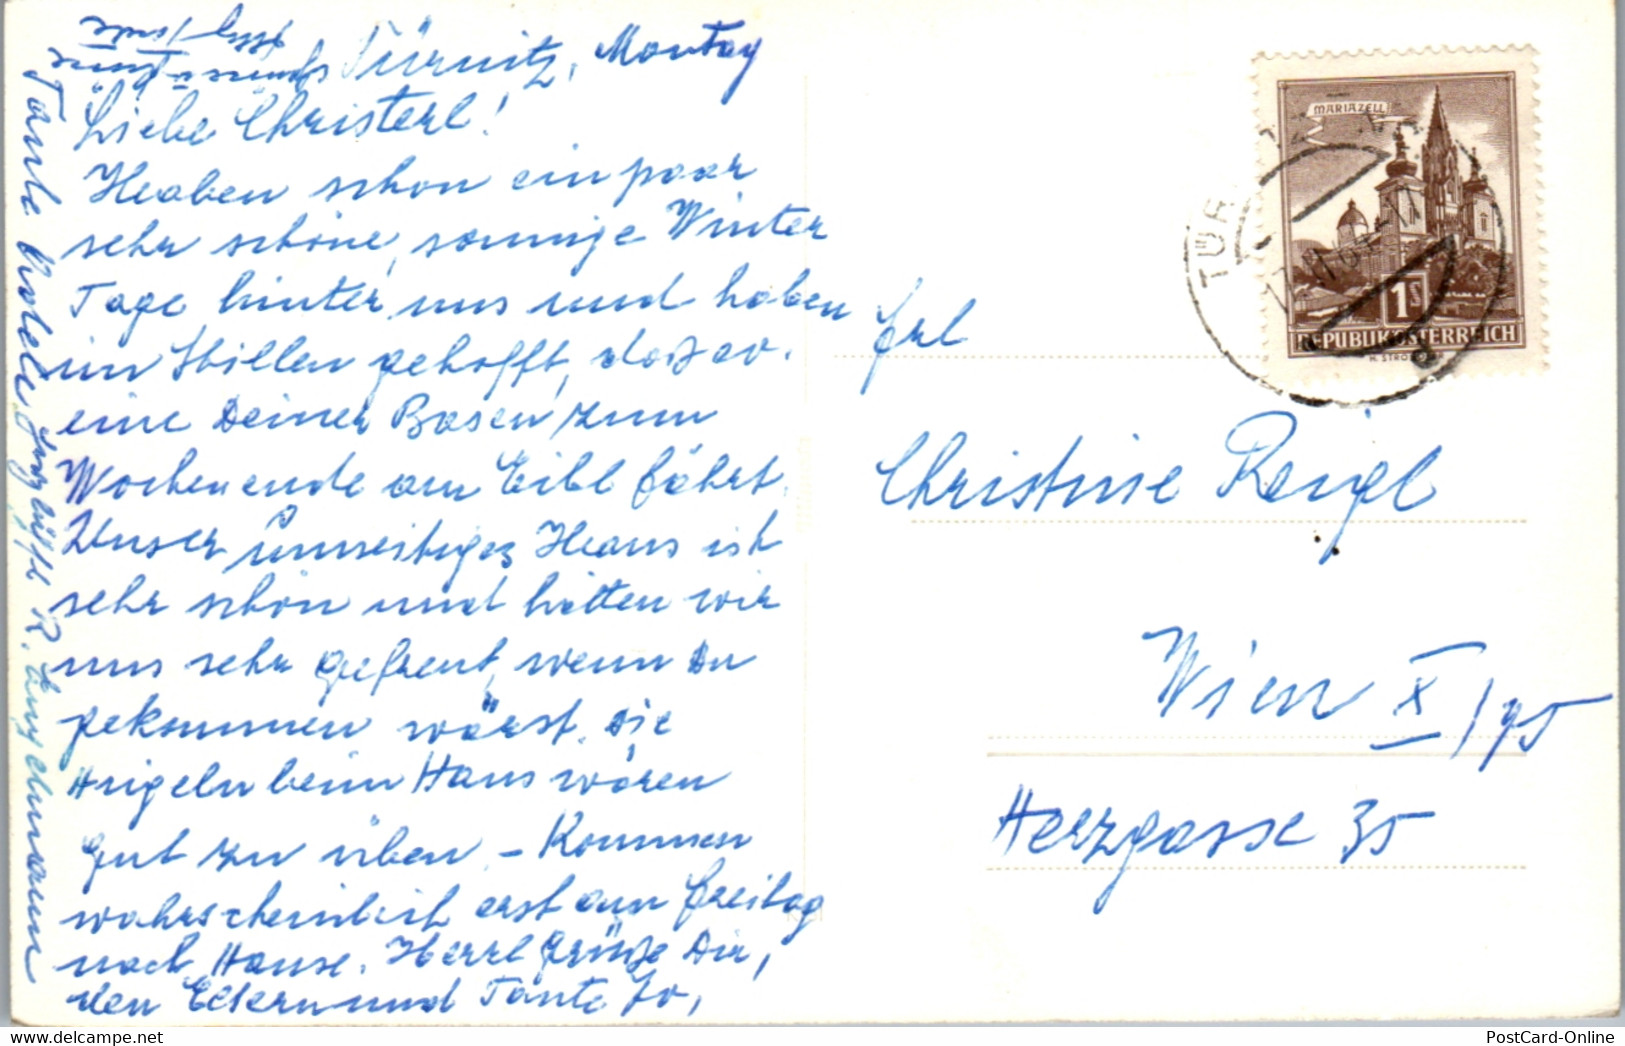 Türnitz, Montag
Liebe Christerl!
Haben schon ein paar
sehr schöne, sonnige Winter
Tage hinter uns und haben
im Stillen gehofft, daß ev.
eine Deiner Basen zum
Wochenende am Eibl fährt.
Unser Haus ist
sehr schön und hätten wir
uns sehr gefreut, wenn Du
gekommen wärst. Die
Hügeln beim Haus wären
gut zu üben. – Kommen
wahrscheinlich erst am Freitag
nach Hause. Herzl. Grüße Dir,
den Eltern und Tante Jo,
Tante R.
Frl
Christine Reigl
Wien X/75
Herzgasse 35
MARIAZELL
1S
REPUBLIK ÖSTERREICH
TÜR
PostCard-Online